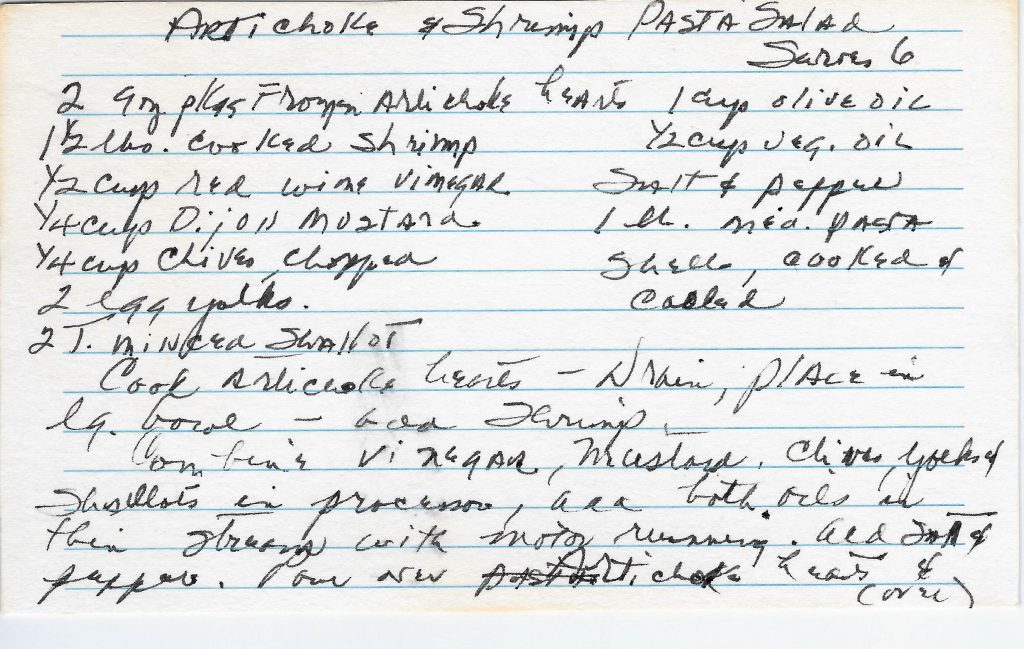 Artichoke & Shrimp Pasta Salad
Serves 6
2 9oz pkgs Frozen Artichoke hearts 1 cup olive oil
1 1/2 lbs. cooked Shrimp 1/2 cup veg. oil
1/2 cup red wine vinegar Salt & pepper
1/4 cup Dijon Mustard 1 lb. med. pasta
1/4 cup Chives, chopped Shells, cooked &
2 egg yolks. cooled
2 T. minced Shallot
Cook Artichoke hearts – Drain, place in
lg. bowl – add Shrimp.
Combine vinegar, Mustard, Chives, yolks &
Shallots in processor, add both oils in
thin streams with motor running. Add Salt &
pepper. Pour over Artichoke hearts &
(over)